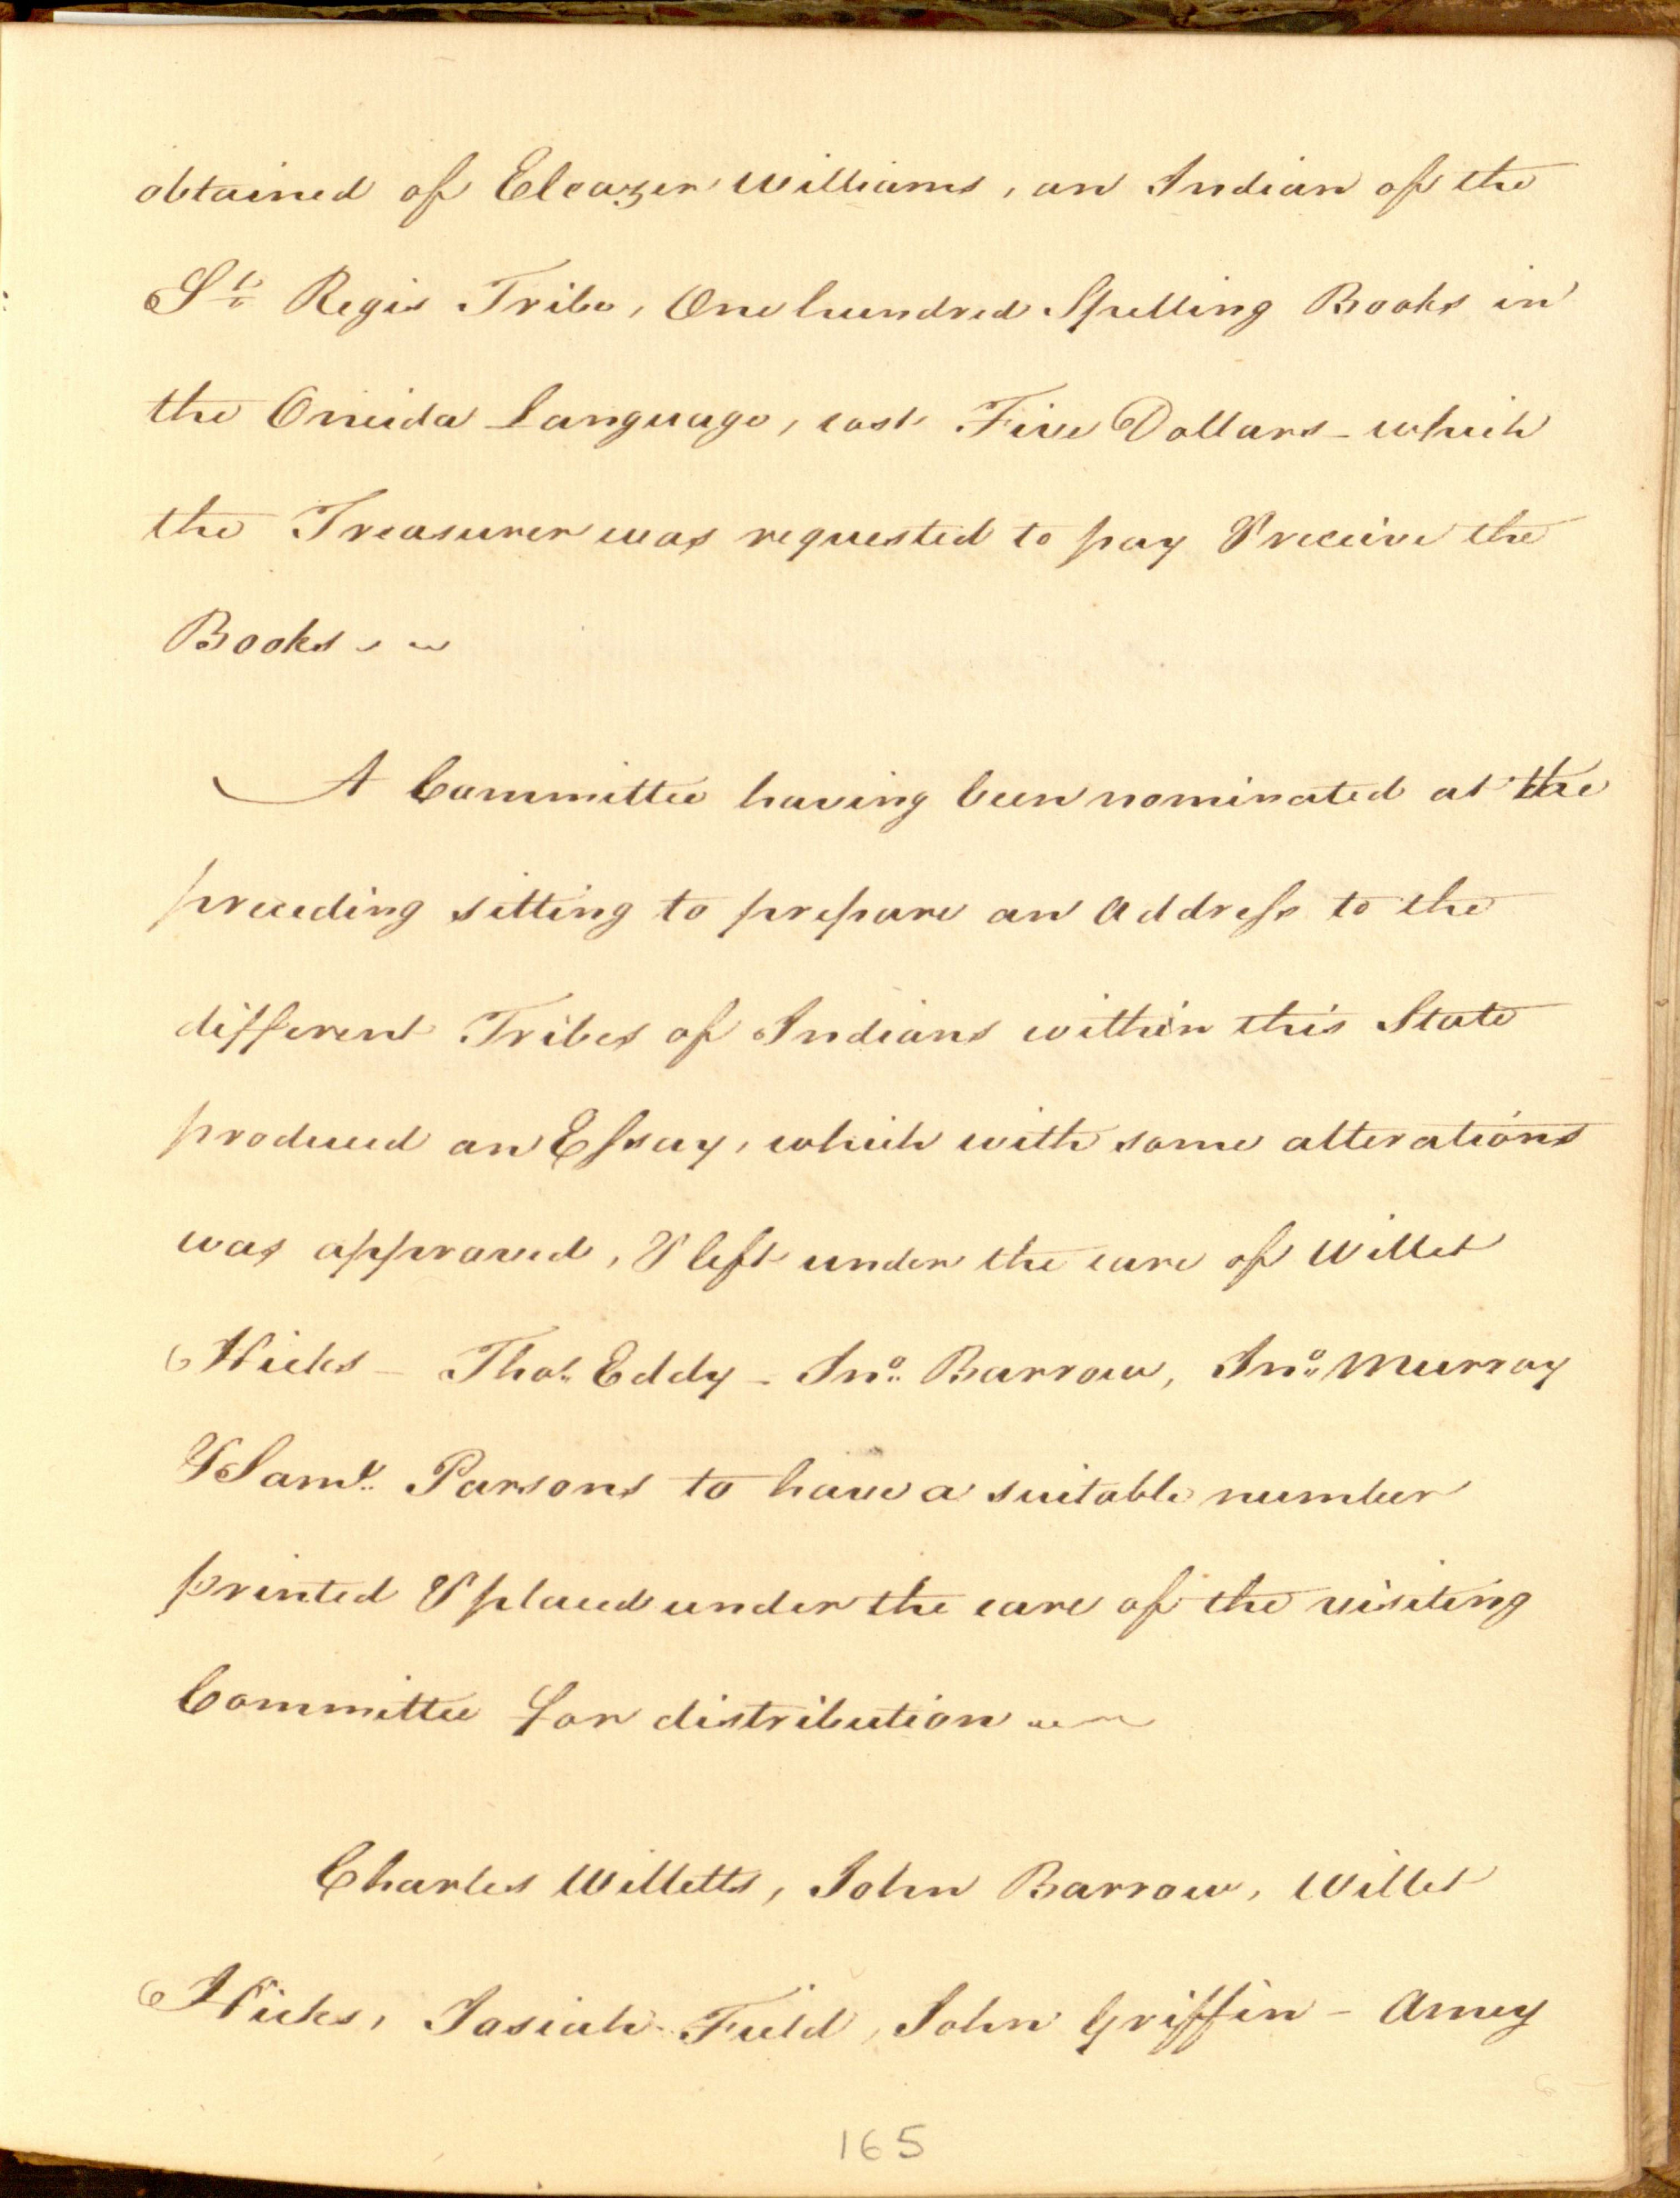 obtained of Eleazer Williams, an Indian of the
St. Regis Tribe, One hundred Spelling Books in
the Oneida Language, cost Five Dollars - which
the Treasurer was requested to pay & receive the
Books
A Committee having been nominated at the
preceeding sitting to prepare an Address to the
different Tribes of Indians within this State
produced an Essay, which with some alterations
was approved, & left under the care of Willet
Hicks - Thos. Eddy - Jno. Barrow, Jno. Murray
& Saml. Parsons to have a suitable number
printed & placed under the care of the visiting
Committee for distribution
Charles Willetts, John Barrow, Willet
Hicks, Josiah Field, John Griffin - Amey
165